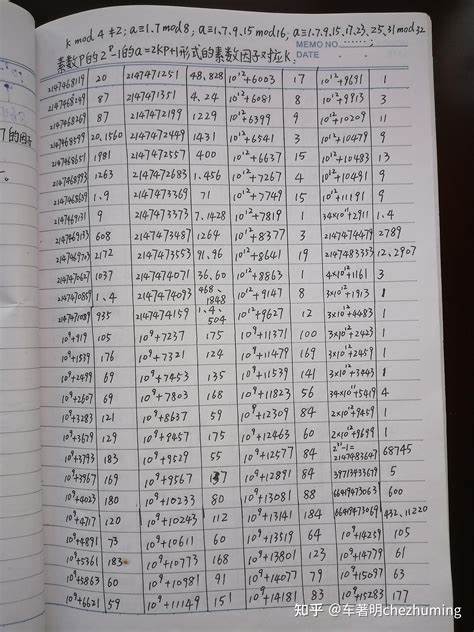 k mod 4 ≠2; a≡1.7 mod 8; a≡1.7.9.15 mod 16; a≡1.7.9.15.17.23.25.31 mod 32
MEMO NO.
DATE
素数P的2^P-1的a=2KP+1形式的素数因子对应k.
7的因子
2147468119 20 2147471251 48,828 10^12+6003 17 10^12+9691 1
2147468249 87 2147471351 4.24 10^12+6081 8 10^12+9913 3
2147468269 87 2147472199 1229 10^12+6399 9 10^12+10209 11
2147468599 20.1560 2147472449 1431 10^12+6541 3 10^12+10479 9
2147468651 1981 2147472557 400 10^12+6637 15 10^12+10483 13
2147468993 1263 2147472683 1.456 10^12+7267 4 10^12+10491 9
1.9 2147473369 71 10^12+7749 15 10^12+11191 9
2147469131 9 2147473373 7.1428 10^12+7819 1 34×10^11+2911 1.4
2147469133 608 2147473487 1264 10^12+8377 3 2147474479 2789
2172 2147473553 91.96 10^12+8641 19 2147483353 12.2907
2147470627 1037 2147474071 36.60 10^12+8863 1 4×10^12+1161 3
2147470859 1.4 2147474093 468.1848 10^12+9147 8 3×10^12+1913 1
2147471089 935 2147474159 1.4.504 10^12+9627 12 3×10^12+4483 1
10^9+919 105 10^9+7237 175 10^9+11371 100 3×10^12+2423 1
10^9+1539 176 10^9+7321 124 10^9+11479 169 3×10^12+2459 1
10^9+2499 69 10^9+7453 135 10^9+11539 141 3×10^12+3443 1
10^9+2607 69 10^9+7803 168 10^9+11823 56 34×10^11+5419 4
10^9+3283 121 10^9+8637 59 10^9+12309 84 2×10^12+9459 1
10^9+3679 129 10^9+9457 175 10^9+12463 60 2×10^12+9699 1
10^9+3793 183 10^9+9529 55 10^9+12577 84 2^31-1=2147483647 68745
10^9+3967 169 10^9+9567 10^9+12891 84 39713433679 5
10^9+4023 180 10^9+10233 80 10^9+13081 88 66419473063 600
10^9+4717 120 10^9+10243 112 10^9+13141 184 66419473069 432.11220
10^9+4891 73 10^9+10611 60 10^9+13519 64 10^9+14259 105
10^9+5361 183 10^9+10773 168 10^9+13801 123 10^9+14779 61
10^9+5863 60 10^9+10981 91 10^9+14077 79 10^9+15097 63
10^9+6621 59 10^9+11149 151 10^9+14181 83 10^9+15283 177
知乎 @车著明chezhuming